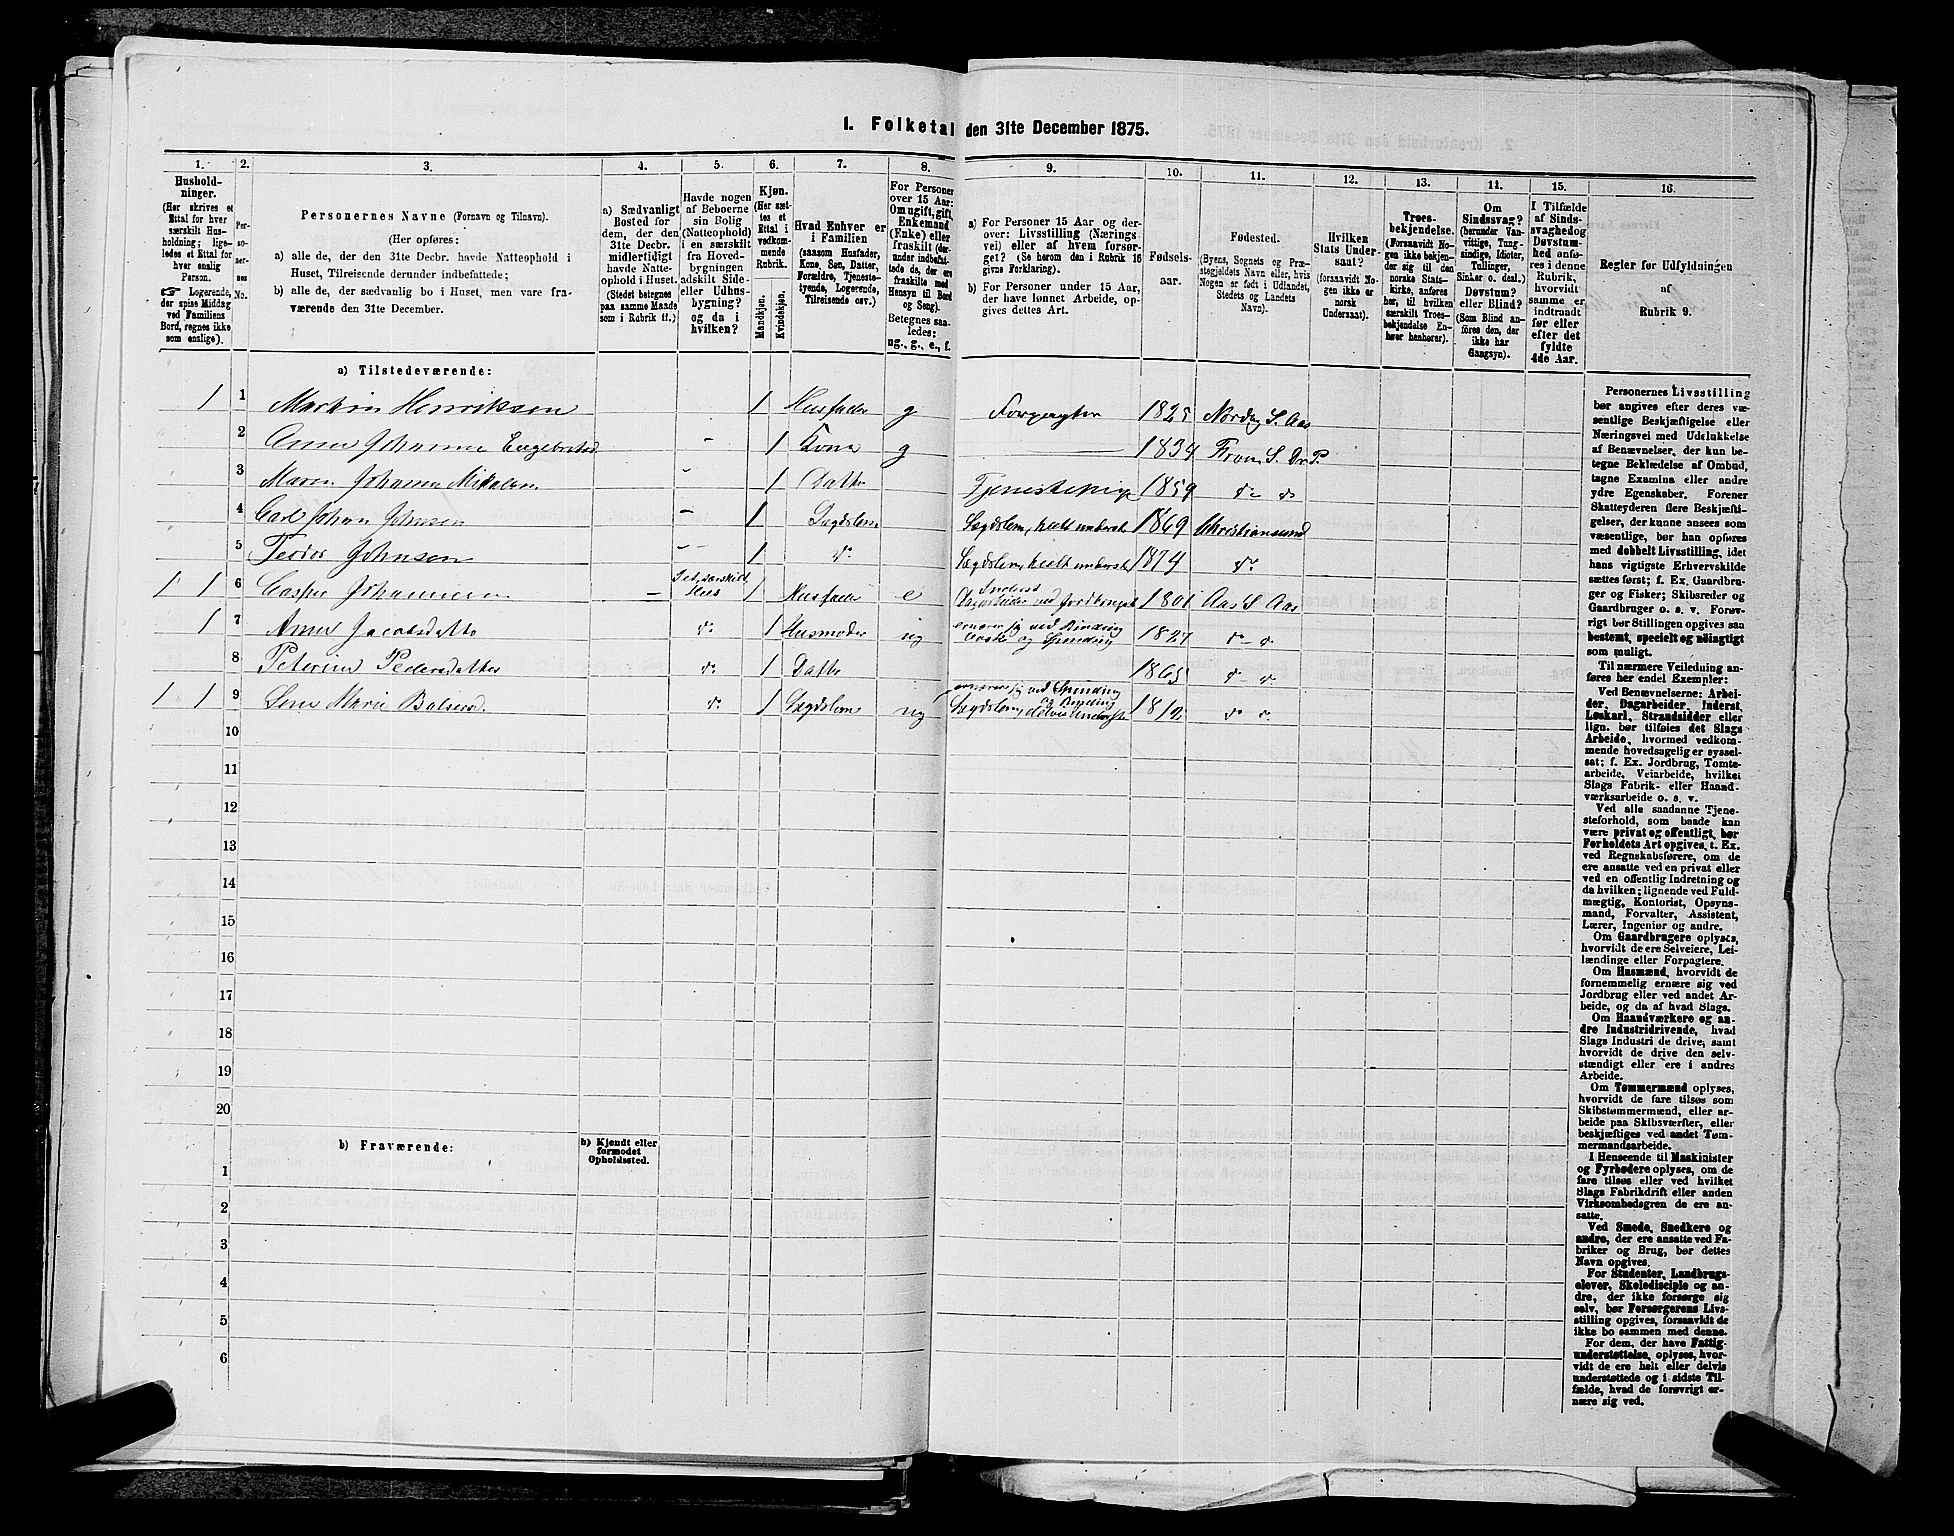 1. Folketal den 31te December 1875.
1. 2. 3. 4. 5. 6. 7. 8. 9. 10. 11. 12. 13. 14. 15. 16.
Hushold-
ninger.
(Her skrives et
Ettal for hver
særskilt Hus-
holdning; lige-
ledes et Ettal for
hver enslig
Person.
☞ Logerende,
der spise Middag
ved Familiens
Bord, regnes ikke
som enslige).
Per-
so-
ner-
nes
No.
Personernes Navne (Fornavn og Tilnavn).
(Her opføres:
a) alle de, der den 31te Decbr. havde Natteophold i
Huset, Tilreisende derunder indbefattede;
b) alle de, der sædvanlig bo i Huset, men vare fra-
værende den 31te December.
a) Sædvanligt
Bosted for
dem, der den
31te Decbr.
midlertidigt
havde Natte-
ophold i Huset.
(Stedet betegnes
paa samme Maade
som i Rubrik 11.)
Havde nogen
af Beboerne
sin Bolig
(Natteophold)
i en særskilt
fra Hoved-
bygningen
adskilt Side-
eller Udhus-
bygning?
og da i
hvilken?
Kjøn.
(Her sæt-
tes et
Ettal i
vedkom-
mende
Rubrik.
Mandkjøn.
Kvindekjøn.
Hvad Enhver er
i Familien
(saasom Husfader,
Kone, Søn, Datter,
Forældre, Tjeneste-
tyende, Logerende,
Tilreisende osv.)
For Personer
over 15 Aar:
Om ugift, gift,
Enkemand
(Enke) eller
fraskilt (der-
under indbefat-
tede de, der ere
fraskilte med
Hensyn til Bord
og Seng).
Betegnes saa-
ledes:
ug., g., e., f.
a) For Personer 15 Aar og der-
over: Livsstilling (Nærings-
vei) eller af hvem forsør-
get? (Se herom den i Rubrik 16
givne Forklaring).
b) For Personer under 15 Aar,
der have lønnet Arbeide, op-
gives dettes Art.
Fødsels-
aar.
Fødested.
(Byens, Sognets og Præ-
stegjeldets Navn eller, hvis
Nogen er født i Udlandet,
Stedets og Landets
Navn).
Hvilken
Stats Under-
saat?
(forsaavidt No-
gen ikke er
norsk
Undersaat).
Troes-
bekjendelse.
(Forsaavidt No-
gen ikke bekjen-
der sig til den
norske Stats-
kirke, anføres
her, til hvilken
særskilt Troes-
bekjendelse En-
hver henhører).
Om
Sindssvag?
(herunder Van-
vittige, Tung-
sindige, Idioter,
Tullinger,
Sinker o. desl.)
Døvstum?
eller Blind?
(Som Blind an-
føres den, der
ikke har
Gangsyn).
I Tilfælde
af Sinds-
svaghed og
Døvstum-
hed anfø-
res i denne
Rubrik,
hvorvidt
samme er
indtraadt
før eller
efter det
fyldte
4de Aar.
Regler før Udfyldningen
af
Rubrik 9.
a) Tilstedeværende:
1 1 Martin Henriksen 1 Husfader g Forpagter 1825 Nordby S. Aas
2 Anne Johanne Engebretsd. 1 Kone g 1834 Fron S. Dr. P.
3 Maren Johanne 1 Datter Tjenestepige 1859 do do
4 Carl Johan Johnsen 1 Lægdslem Lægdslem, helt underst. 1869 Christiansund
5 Johnsen 1 do Lægdslem, helt underst. 1874 do
1 1 6 Casper Johannesen 1 Husfader e Inderst Dagarbeider ved Jordbruget 1801 Aas S. Aas
1 7 Anne Jacobsdatter do 1 Husmoder ug ernærer sig ved Binding og Spinding 1827 do do
8 Petrine Pedersdatter do 1 Datter 1865 do do
1 1 9 Lene Marie do 1 Lægdslem ug ernærer sig ved Spinding og Binding Lægdslem, delvis underst. do do
10
11
12
13
14
15
16
17
18
19
20
b) Fraværende:
b) Kjendt eller
formodet
Opholdssted.
1
2
3
4
5
6
Personernes Livsstilling
bør angives efter deres væ-
sentlige Beskjæftigelse eller
Næringsvei med Udelukkelse
af Benævnelser, der kun be-
tegne Beklædelse af Ombud,
tagne Examina eller andre
ydre Egenskaber. Forener
Skatteyderen flere Beskjæfti-
gelser, der kunne ansees som
væsentlige, bør han opføres
med dobbelt Livsstilling, idet
hans vigtigste Erhvervskilde
sættes først; f. Ex. Gaardbru-
ger og Fisker; Skibsreder og
Gaardbruger o. s. v. Forøv-
rigt bør Stillingen opgives saa
bestemt, specielt og nøiagtigt
som muligt.
Til nærmere Veiledning an-
føres her endel Exempler:
Ved Benævnelserne: Arbei-
der, Dagarbeider, Inderst,
Løskarl, Strandsidder eller
lign. bør tilføies det Slags
Arbeide, hvormed vedkom-
mende hovedsagelig er syssel-
sat; f. Ex. Jordbrug, Tomte-
arbeide, Veiarbeide, hvilket
Slags Fabrik- eller Haand-
værksarbeide o. s. v.
Ved alle saadanne Tjene-
steforhold, som baade kan
være privat og offentligt, bør
Forholdets Art opgives, t. Ex.
ved Regnskabsførere, om de
ere ansatte ved en privat eller
ved en offentlig Indretning og
da hvilken; lignende ved Fuld-
mægtig, Kontorist, Opsyns-
mand, Forvalter, Assistent,
Lærer, Ingeniør og andre.
Om Gaardbrugere oplyses,
hvorvidt de ere Selveiere, Lei-
lændinge eller Forpagtere.
Om Husmænd, hvorvidt de
fornemmelig ernære sig ved
Jordbrug eller ved andet Ar-
beide, og da af hvad Slags.
Om Haandværkere og an-
dre Industridrivende, hvad
Slags Industri de drive, samt
hvorvidt de drive den selv-
stændigt eller ere i andres
Arbeide.
Om Tømmermænd oplyses,
hvorvidt de fare tilsøs som
Skibstømmermænd, eller ar-
beide paa Skibsværfter, eller
beskjæftiges ved andet Tøm-
mermandsarbeide.
I Henseende til Maskinister
og Fyrbødere oplyses, om de
fare tilsøs eller ved hvilket
Slags Fabrikdrift eller anden
Virksomhedsgren de ere an-
satte.
Ved Smede, Snedkere og
andre, der ere ansatte ved Fa-
briker og Brug, bør dettes
Navn opgives.
For Studenter, Landbrugs-
elever, Skoledisciple og an-
dre, der ikke forsørge sig
selv, bør Forsørgerens Livs-
stilling opgives, forsaavidt de
ikke bo sammen med denne.
For dem, der have Fattig-
understøttelse, oplyses, hvor-
vidt de ere helt eller delvis
understøttede og i sidste Til-
fælde, hvad de forøvrigt er-
nære sig ved.